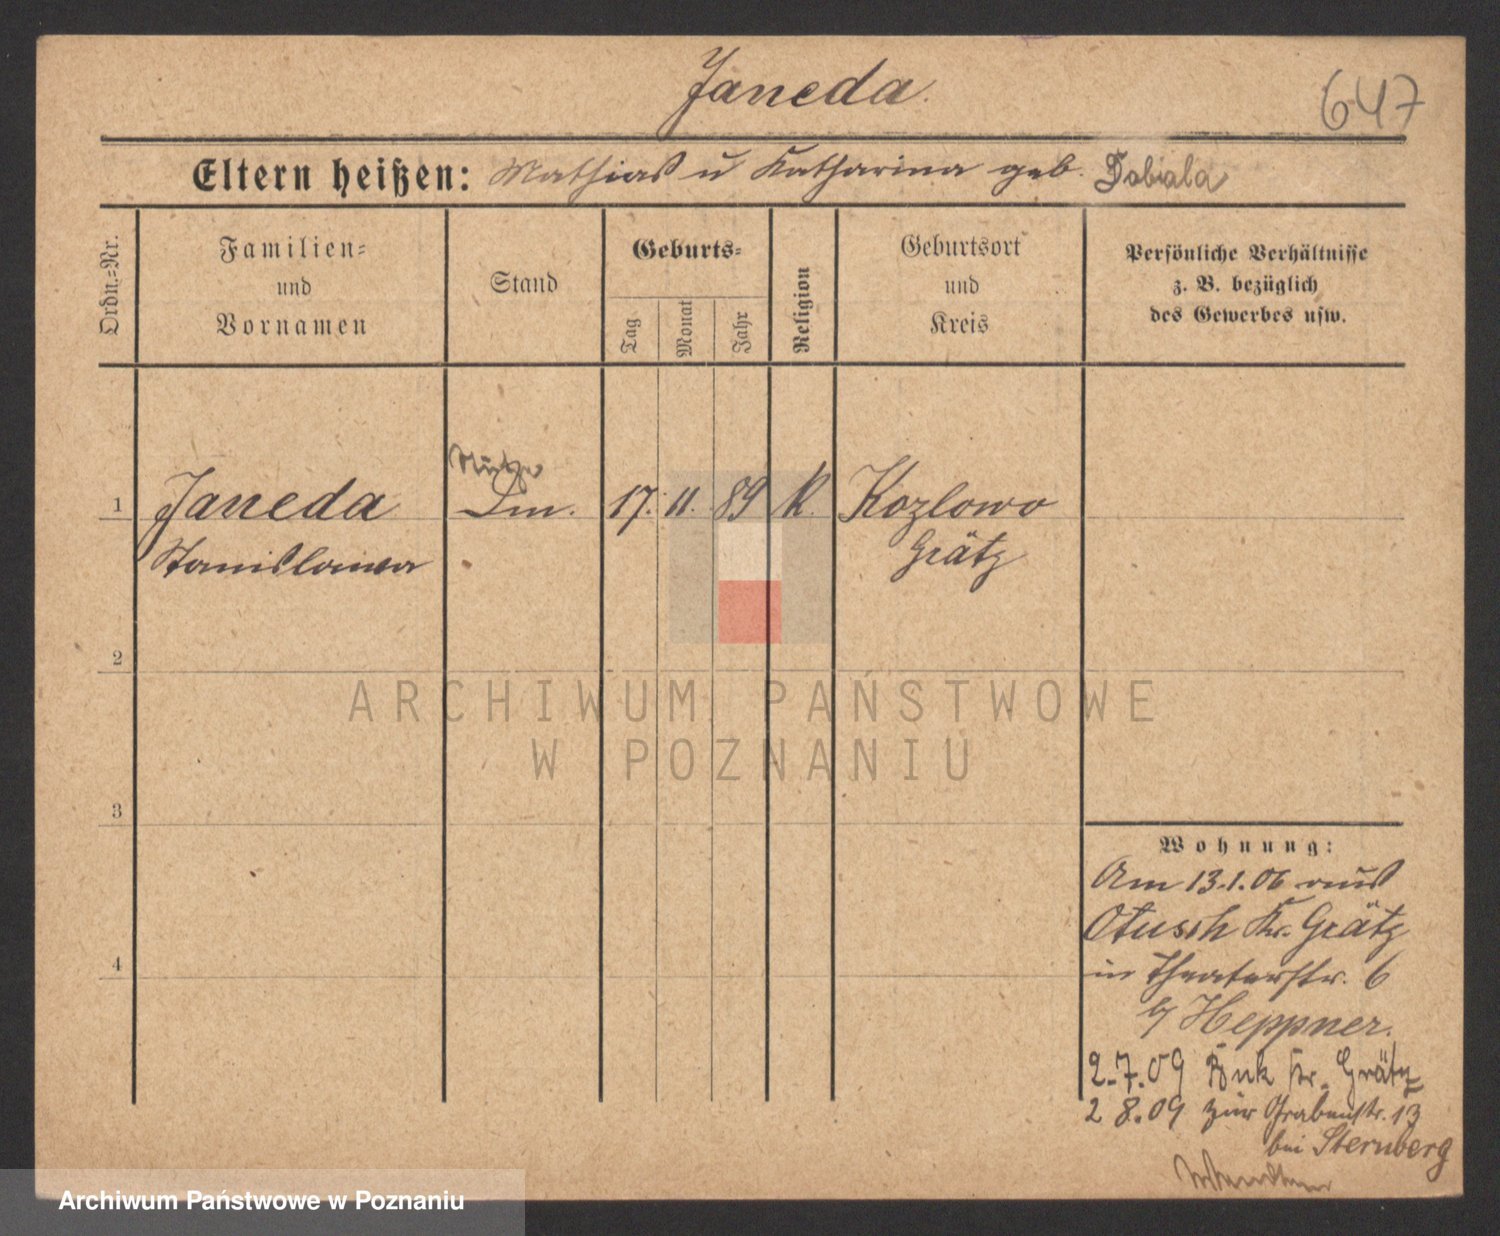 Janeda.
647
Eltern heißen: Mathias u Katharina geb. Dobiala
Ordn.=Nr.
Familien=
und
Vornamen
Stand
Geburts=
Tag
Monat
Jahr
Religion
Geburtsort
und
Kreis
Persönliche Verhältnisse
z. B. bezüglich
des Gewerbes usw.
1 Janeda 17. 11. 89 K. Kozlowo
Stanislawa Grätz
2
3
4
ARCHIWUM PAŃSTWOWE
W POZNANIU
Wohnung:
Am 13.1.06 aus
Otusch Kr. Grätz
in Theaterstr. 6
b/ Heppner.
2.7.09 Buk Kr. Grätz
2 8.09 zur Grabenstr. 13
bei Sternberg
Archiwum Państwowe w Poznaniu